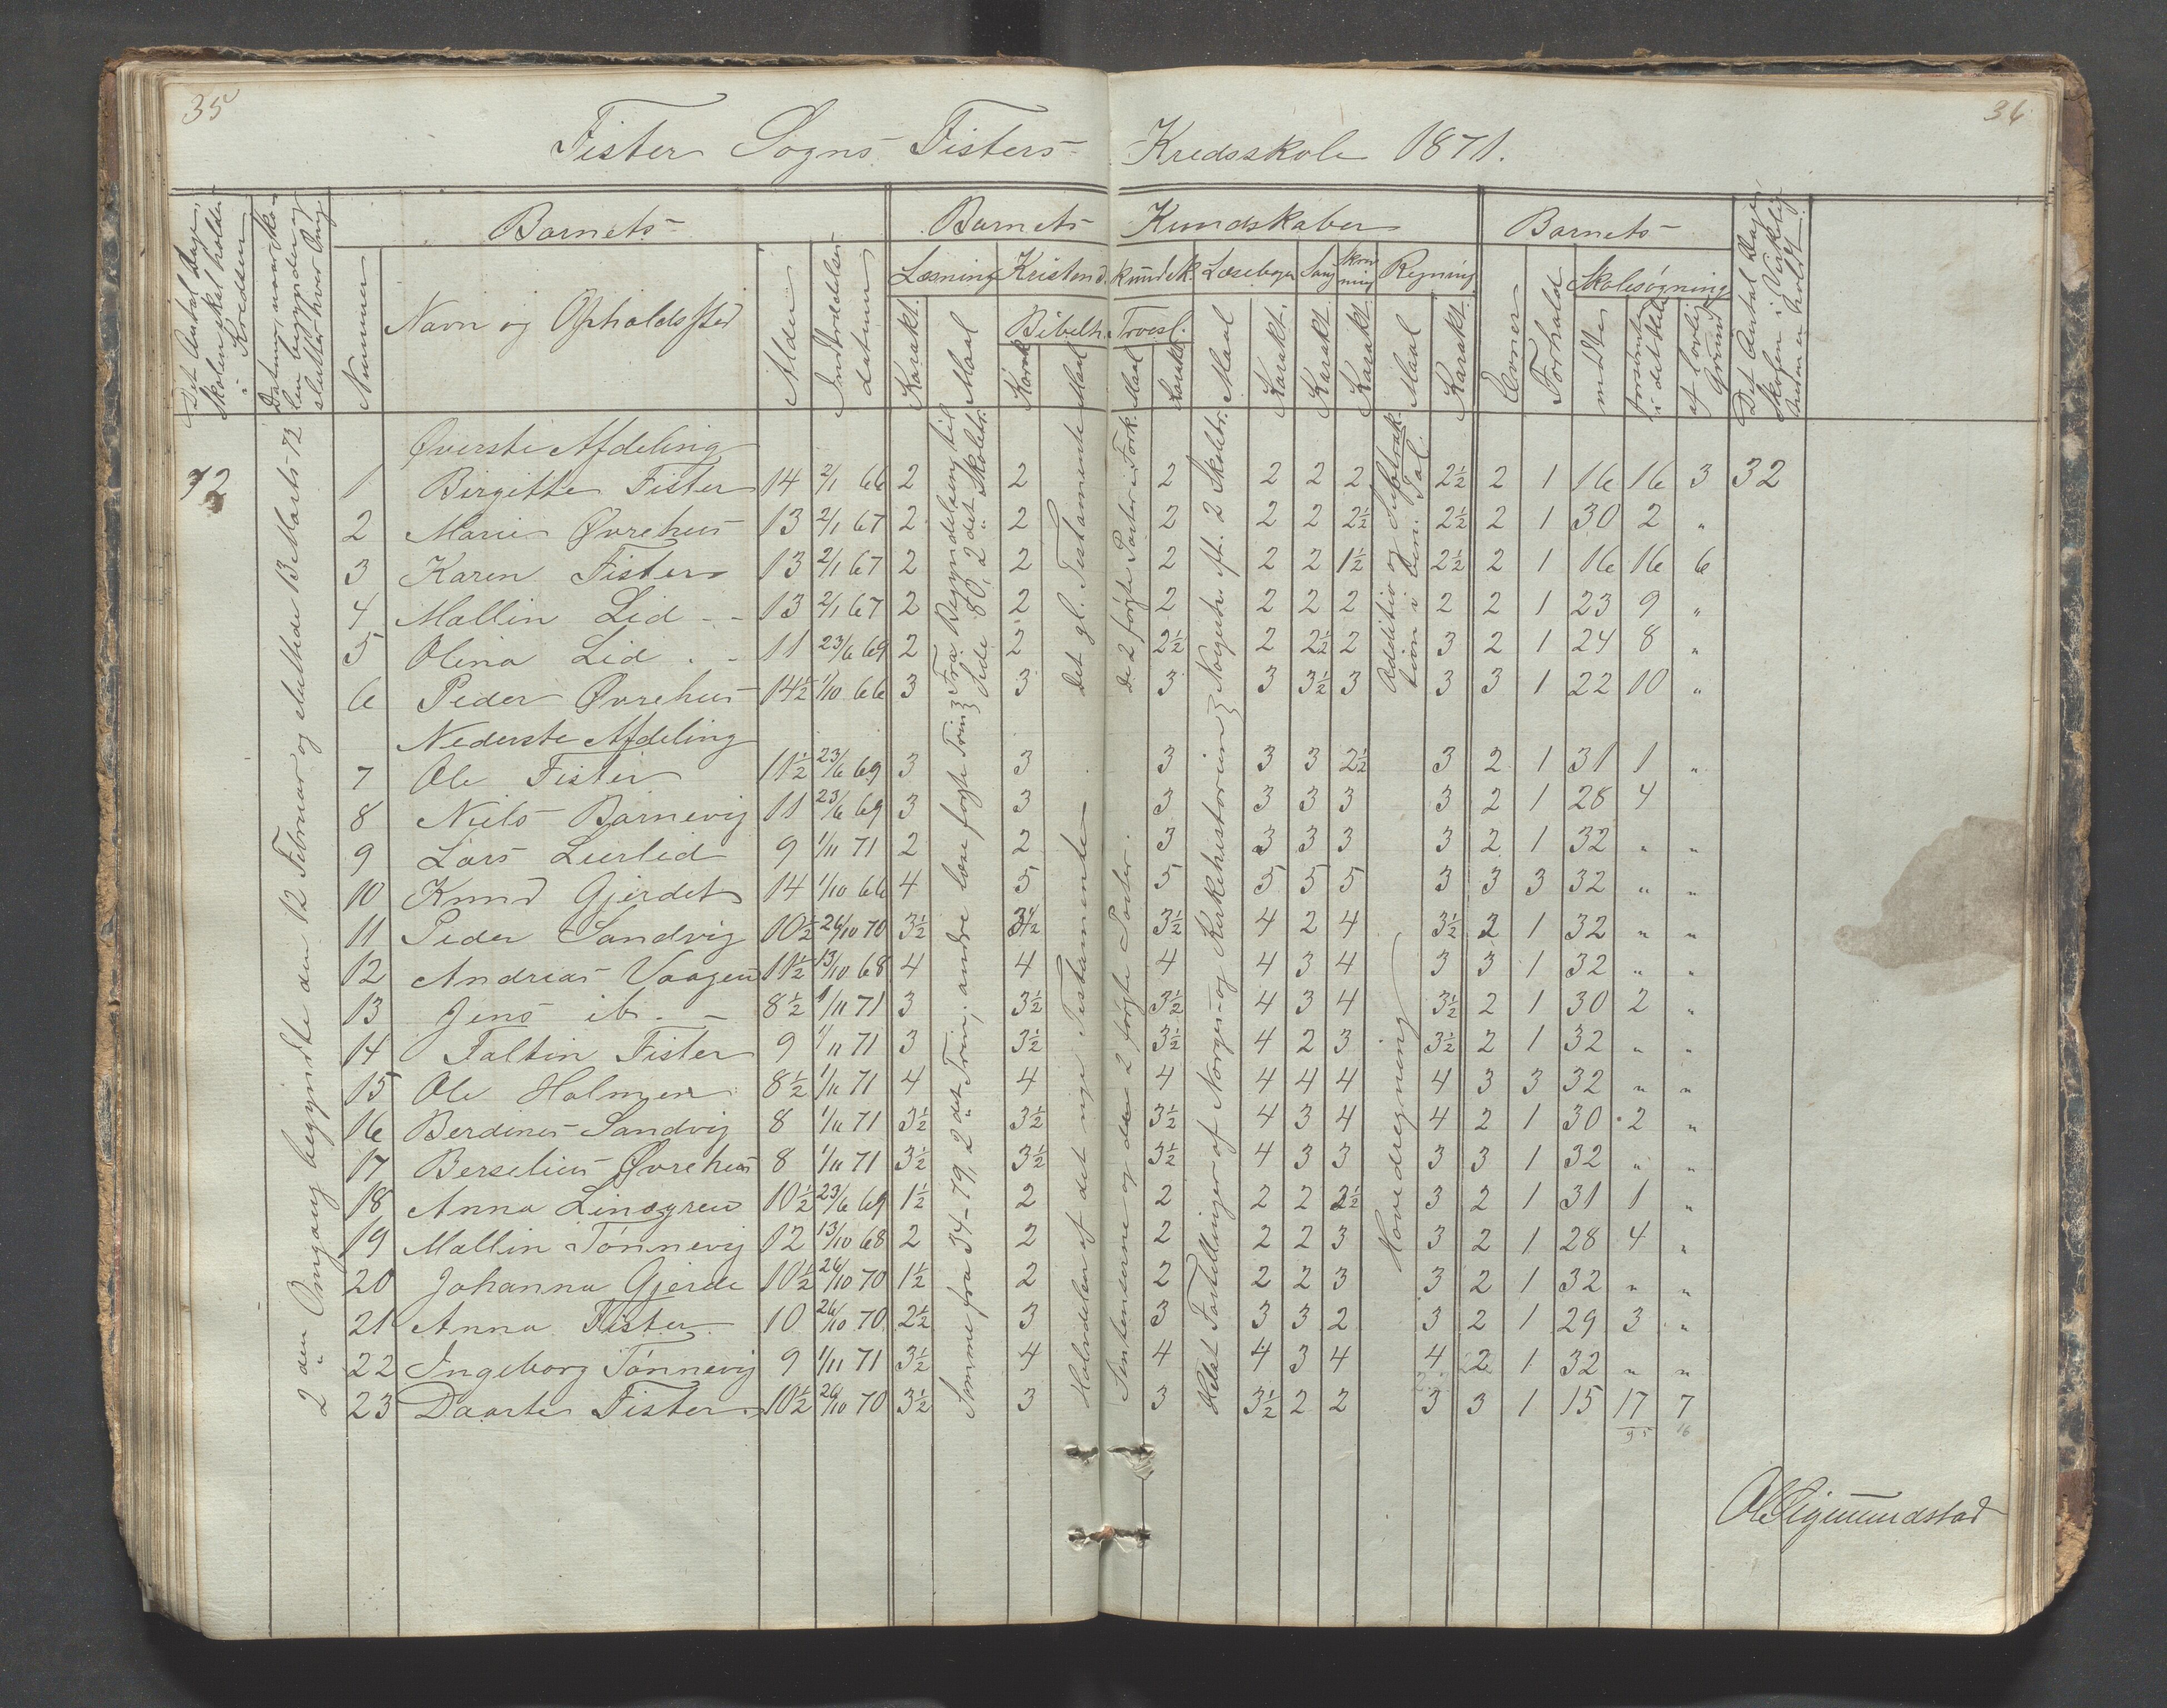 35
36
Fister Sogns Fisters Kredsskole 1871.
Det Antal Dage, Skolen skal holdes i Kredsen
Datum, naar Skolen begynder og slutter hver Omg.
Nummer
Barnets
Navn og Opholdssted
Alder
Indtrædelsesdatum
Barnets Kundskaber
Læsning
Karakt.
Maal
Kristend. kundsk.
Bibelh.
Karakt.
Maal
Troesl.
Maal
Karakt.
Læsebogen
Maal
Karakt.
Sang
Karakt.
Skrivning
Karakt.
Regning
Maal
Karakt.
Barnets
Evner
Forhold
Skolesøgning
mødte
forsømte i det Hele
af lovlig Grund
Det Antal Dage, Skolen i Virkelighed er holdt
Øverste Afdeling
32 1 Birgitte Fister 14 2/1 66 2 2 2 2 2 2 2½ 2 1 16 16 3 32
2 Marie Øvrehus 13 2/1 67 2 2 2 2 2 2½ 2½ 2 1 30 2 "
3 Karen Fister 13 2/1 67 2 2 2 2 2 1½ 2½ 2 1 16 16 6
4 Mallin Lid - - 13 2/1 67 2 2 2 2 2 2 2 2 1 23 9 "
5 Olina Lid . - 11 23/6 69 2 2 2½ 2 2½ 2 3 2 1 24 8 "
6 Peder Øvrehus 14½ 1/10 66 3 3 3 3 3½ 3 3 3 1 22 10 "
Nederste Afdeling
7 Ole Fister 11½ 23/6 69 3 3 3 3 3 2½ 3 2 1 31 1 "
8 Niels Barnevig 11 23/6 69 3 3 3 3 3 3 3 2 1 28 4
9 Lars Leerlid 9 1/11 71 2 2 3 3 3 3 3 2 1 32 " "
10 Knud Gjerdet 14 1/10 66 4 5 5 5 5 5 3 3 3 32 " "
11 Peder Sandvig 10½ 26/10 70 3½ 3½ 3½ 4 2 4 3½ 2 1 32 " "
12 Andreas Vaagen 11½ 13/10 68 4 4 4 4 3 4 3 3 1 32 " "
13 Jens ib. - 8½ 1/11 71 3 3½ 3½ 4 3 4 3½ 2 1 30 2 "
14 Faltin Fister 9 1/11 71 3 3½ 3½ 4 2 3 3½ 2 1 32 " "
15 Ole Holmen 8½ 1/11 71 4 4 4 4 4 4 4 3 3 32 " "
16 Berdines Sandvig 8 1/11 71 3½ 3½ 3½ 4 3 4 4 2 1 30 2 "
17 Berselius Øvrehus 8 1/11 71 3½ 3½ 3½ 4 3 3 3 3 1 32 " "
18 Anna Lindgren 10½ 23/6 69 1½ 2 2 2 2 2½ 3 2 1 31 1 "
19 Mallin Tønnevig 12 13/10 68 2 2 2 2 2 3 3 2 1 28 4 "
20 Johanna Gjerde 10½ 26/10 70 1½ 2 2 2 2 3 3 2 1 32 " "
21 Anna Fister 10 26/10 70 2½ 3 3 3 3 2 3 2 1 29 3 "
22 Ingeborg Tønnevig 9 1/11 71 3½ 4 4 4 3 4 4 2 1 32 " "
23 Daarte Fister 10½ 26/10 70 3½ 3 3 3½ 2 2 3 3 1 15 17 7
95 16
2den Omgang begyndte den 12 Februar og sluttede 13 Marts 72
Fra Begyndelsen til Side 80, 2det Skoletr.
Somme fra 34-79, 2det Trin; andre læse første Trin
Det gl. Testamente
Halvdelen af det nye Testamente
De 2 første Parter i Fork.
Sentenserne og de 2 første Parter.
Norgesh. ft. 2 Skoletr.
Helst Fortellinger af Norges- og Kirkehistorien
Addition og Subtraktion i ben. Tal.
Hovedregning
O Sigmundstad